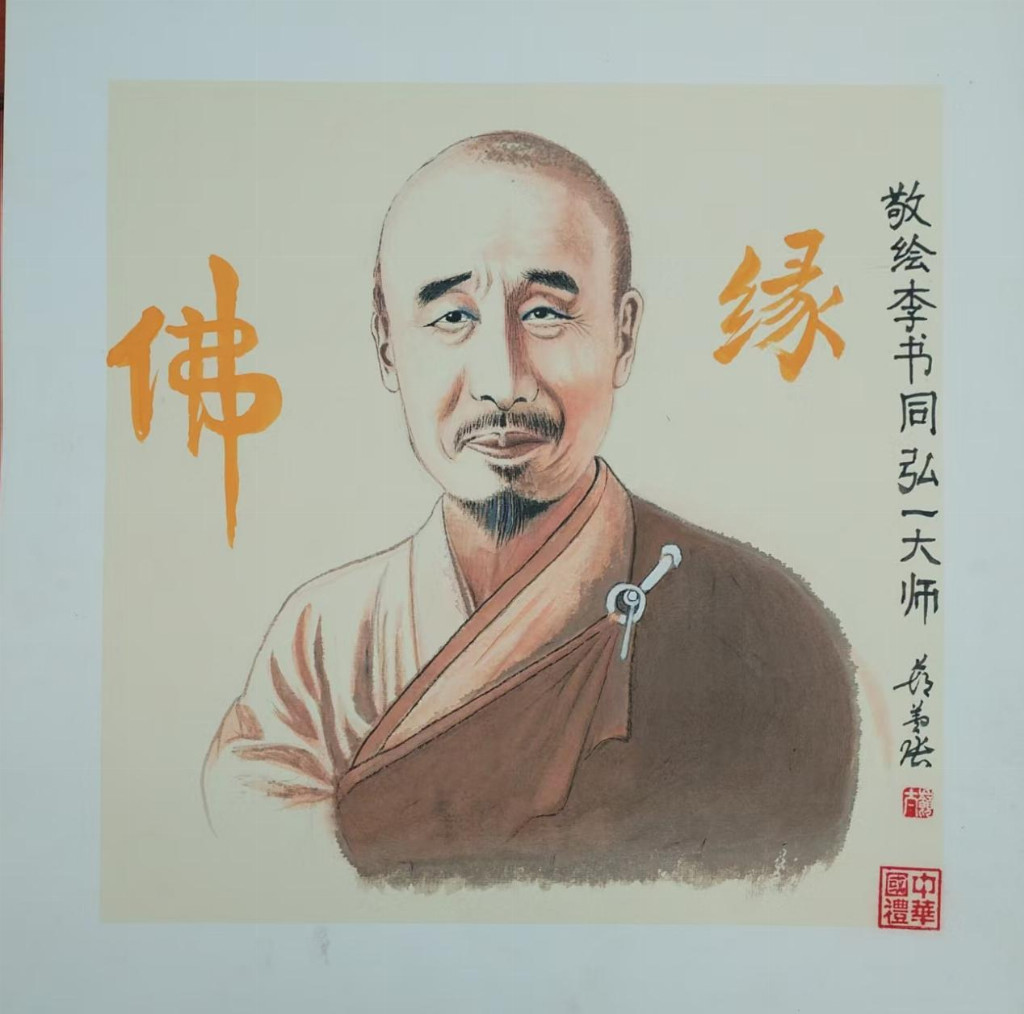 佛
缘
敬绘李书同弘一大师
中華
國禮